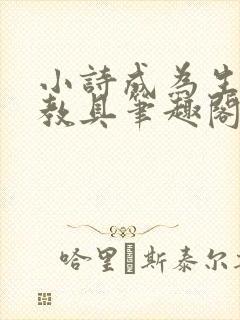 小詩成為生
教具筆趣閣
哈里斯泰尔